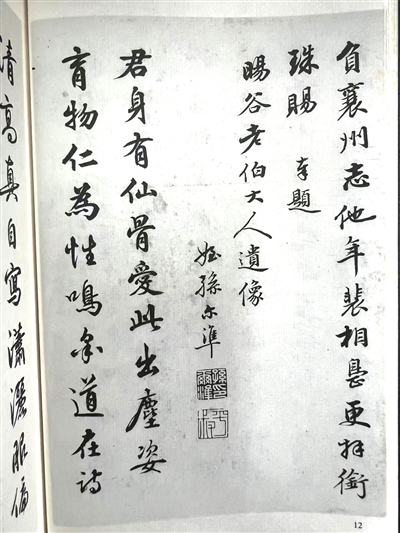 負襄州志他年裴相更拜銜
珠賜 奉題
暘谷老伯大人遺像
姪孫尔準
君身有仙骨愛此出塵姿
育物仁為性鳴琴道在詩
清高真自寫瀟灑服偏
12